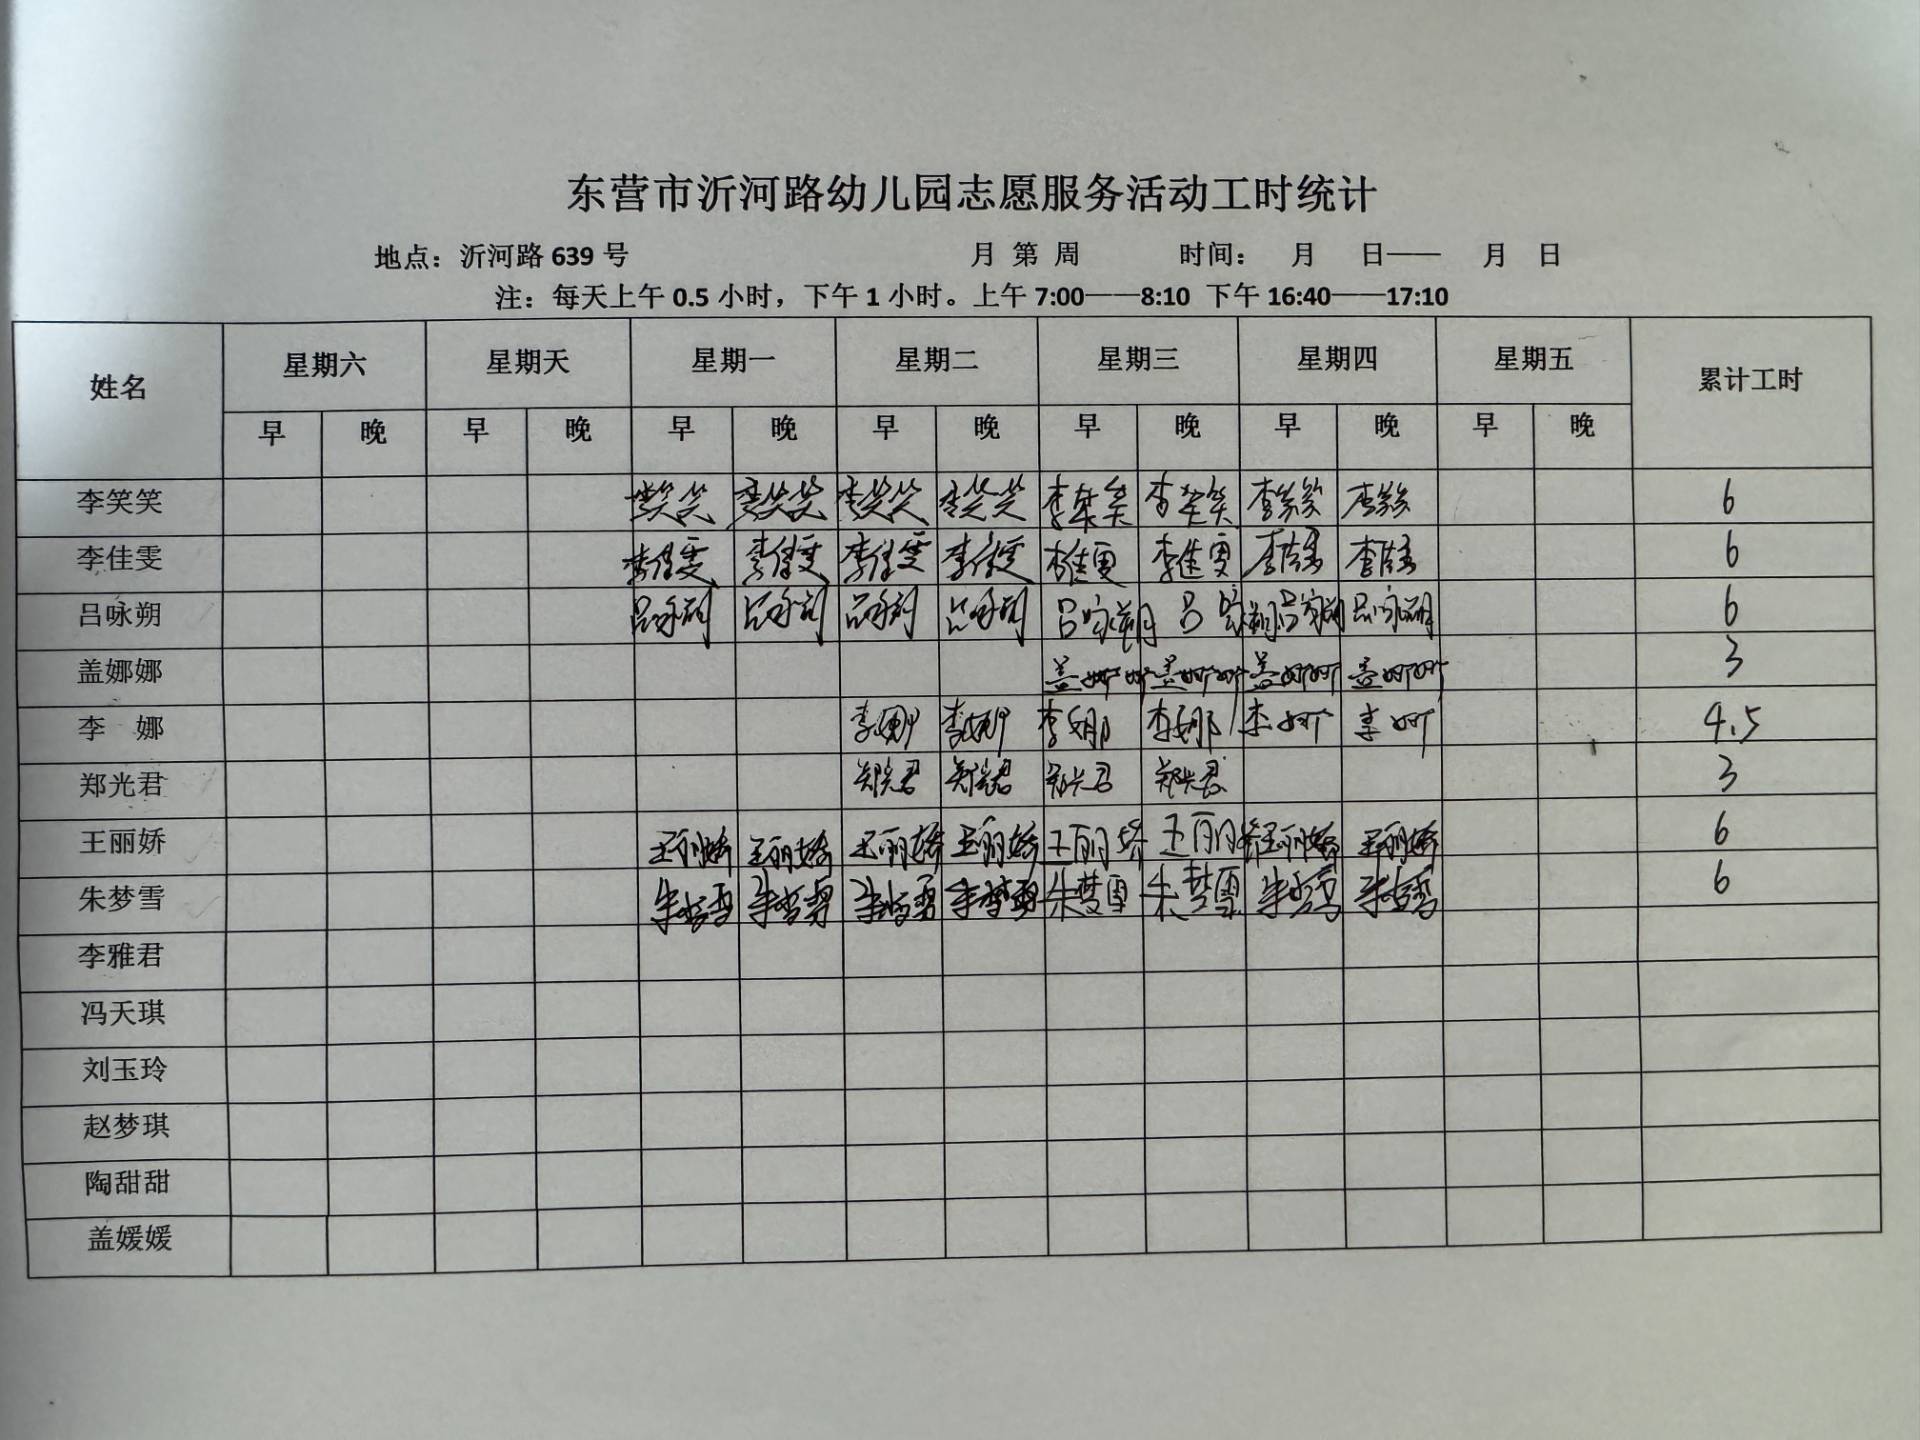 东营市沂河路幼儿园志愿服务活动工时统计
地点：沂河路 639 号 月 第 周 时间： 月 日—— 月 日
注：每天上午 0.5 小时，下午 1 小时。上午 7:00——8:10 下午 16:40——17:10
姓名 星期六 星期天 星期一 星期二 星期三 星期四 星期五 累计工时
早 晚 早 晚 早 晚 早 晚 早 晚 早 晚 早 晚
李笑笑 李笑笑 李笑笑 李笑笑 李笑笑 李笑笑 李笑笑 李笑笑 李笑笑 6
李佳雯 李佳雯 李佳雯 李佳雯 李佳雯 李佳雯 李佳雯 李佳雯 李佳雯 6
吕咏朔 吕咏朔 吕咏朔 吕咏朔 吕咏朔 吕咏朔 吕咏朔 吕咏朔 吕咏朔 6
盖娜娜 盖娜娜 盖娜娜 盖娜娜 盖娜娜 3
李 娜 李娜 李娜 李娜 李娜 李娜 李娜 4.5
郑光君 郑光君 郑光君 郑光君 郑光君 3
王丽娇 王丽娇 王丽娇 王丽娇 王丽娇 王丽娇 王丽娇 王丽娇 王丽娇 6
朱梦雪 朱梦雪 朱梦雪 朱梦雪 朱梦雪 朱梦雪 朱梦雪 朱梦雪 朱梦雪 6
李雅君
冯天琪
刘玉玲
赵梦琪
陶甜甜
盖媛媛